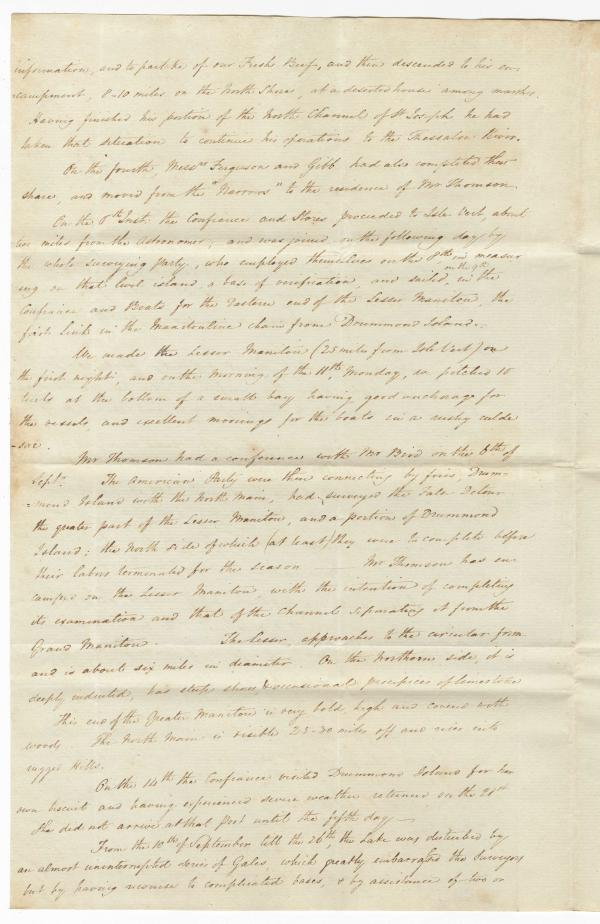 information, and to partake of our Fresh Beef, and then descended to his en-
campment, 8-10 miles on the North Shore, at a deserted house among marshes.
Having finished his portion of the North Channel of St Joseph he had
taken that situation to continue his operations to the Thessalon River.
On the fourth, Messrs Ferguson and Gibb had also completed their
share, and moved from the "Narrows" to the residence of Mr Thomson.
On the 6th Inst: the Confiance and Stores proceeded to Isle Vert, about
ten miles from the Astronomer; and was joined, on the following day by
the whole Surveying party, who employed themselves on the 8th in measur
ing on that level island, a base of verification, and sailed, on the 9th in the
Confiance and Boats for the Eastern end of the Lesser Manitou, the
first link in the Manitouline chain from Drummond Island.
We made the Lesser Manitou (25 miles from Isle Vert) on
the first night, and on the morning of the 11th, Monday, we pitched 10
tents at the bottom of a small bay having good anchorage for
the vessels and excellent moorings for the boats in a rushy culde
-sac.
Mr Thomson had a conference with Mr Bird on the 6th of
Septr. The American Party were then connecting by fires, Drum-
=mond Island with the North Main, had surveyed the False Detour
the greater part of the Lesser Manitou, and a portion of Drummond
Island; the North side of which (at least) they were to complete before
their labors terminated for the season Mr Thomson has en
camped on the Lesser Manitou with the intention of completing
its examination and that of the Channel separating it from the
Grand Manitou. The Lesser, approaches to the circular form
and is about six miles in diameter. On the Northern side, it is
deeply indented, has steep shores & occasional precipices of limestone
This end of the Greater Manitou is very bold, high and covered with
woods. The North Main is visible 25-30 miles off and rises into
rugged Hills.
On the 14th the Confiance visited Drummond Island for her
own biscuit and having experienced severe weather returned on the 21st
She did not arrive at that Post until the fifth day.
From the 10th of September till the 26th, the Lake was disturbed by
an almost uninterrupted series of Gales, which greatly embarrassed the Surveyors
but by having recourse to complicated bases, & by assistance of two or